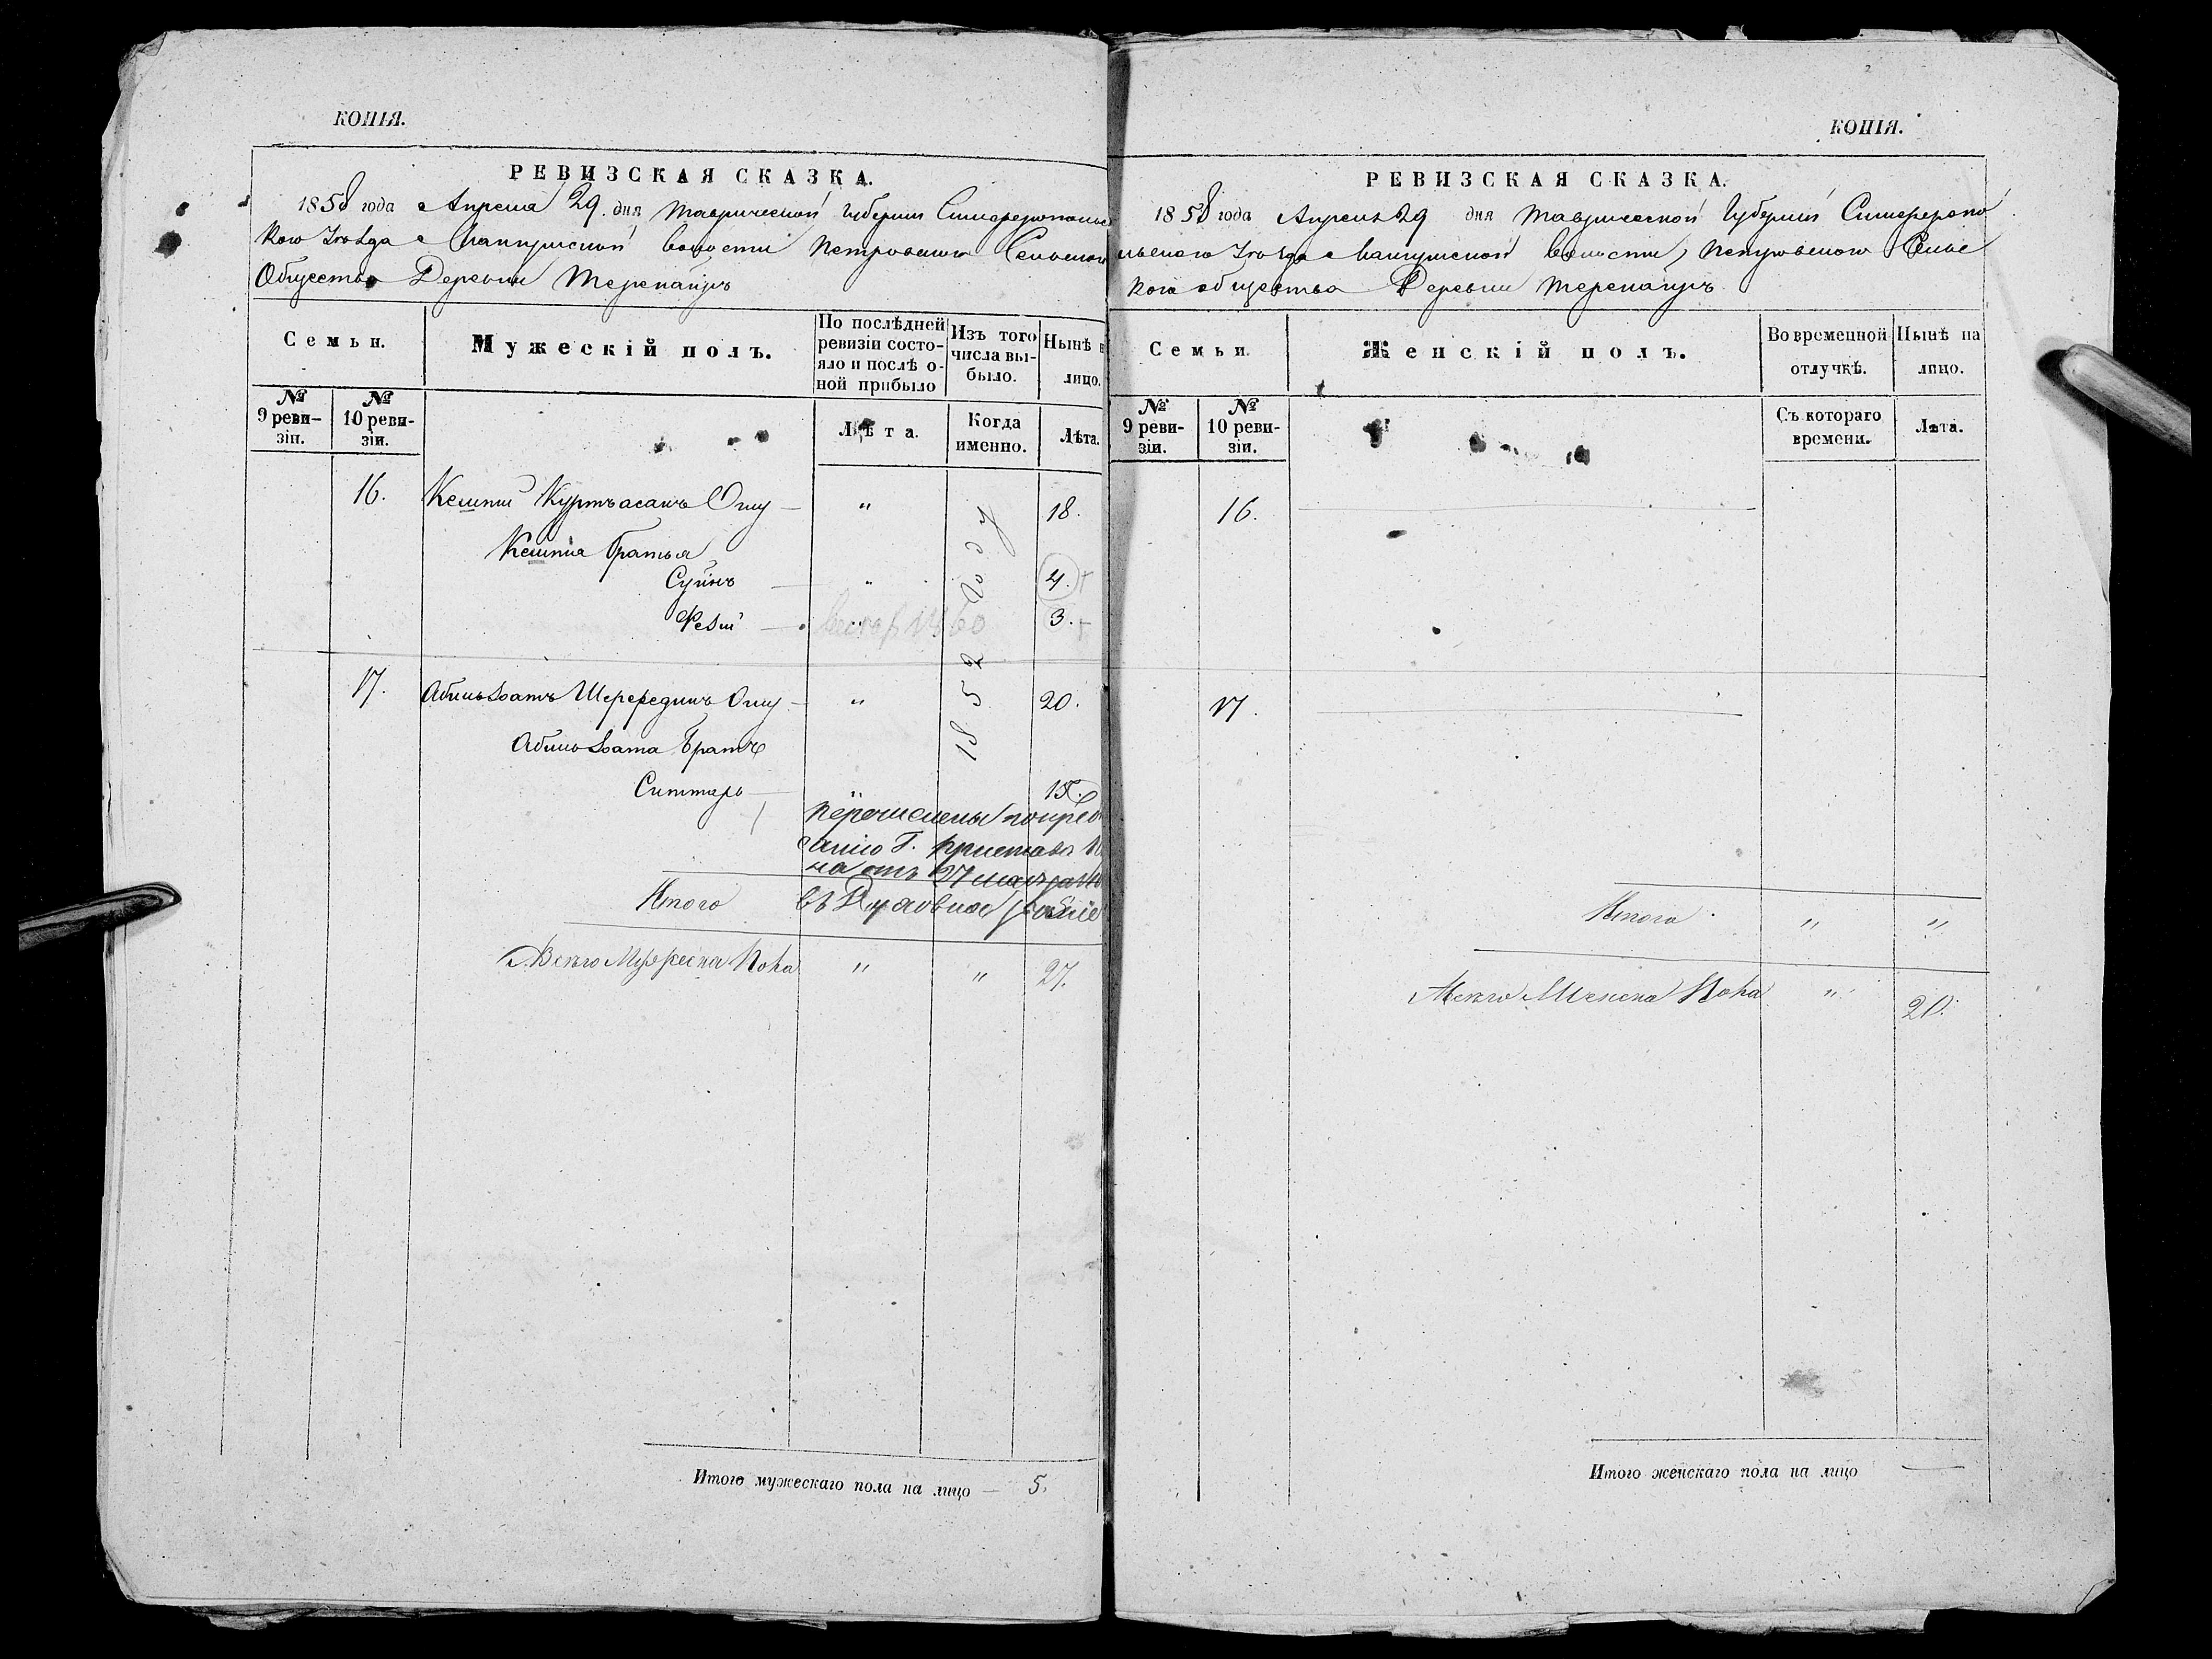 КОПІЯ.
РЕВИЗСКАЯ СКАЗКА.
1858 года Апреля 29. дня Таврической Губернии Симферопольс
кого Уезда Мангушской волости Петровского Сельского
Общества Деревни Терепайръ
Семьи.
Мужескій полъ.
По послѣдней ревизіи состо-яло и послѣ о-ной прибыло
Изъ того числа вы-было.
Нынѣ н лицо.
№ 9 реви-зіи.
№ 10 реви-зіи.
Лѣта.
Когда именно.
Лѣта.
16. Кешти Куртъасанъ Оглу — " 18.
Кештия братья
Суинъ — " 4.
— 3.
1860
1852 году
17. Шерфединъ Оглу — " 20.
братъ
Ситтаръ — " 15.
перечислены по пред
санію Г. Пристава
на отъ 27
въ
Итого
Всего Мужеска Пола " " 27.
Итого мужескаго пола на лицо — 5.
КОПІЯ.
РЕВИЗСКАЯ СКАЗКА.
1858 года Апреля 29 дня Таврической Губернии Симферопо
льского Уезда Мангушской волости, Петровского Сельс
кого общества Деревни Терепайръ
Семьи.
Женскій полъ.
Во временной отлучкѣ.
Нынѣ на лицо.
№ 9 реви-зіи.
№ 10 реви-зіи.
Съ котораго времени.
Лѣта.
16.
17.
Итого " "
Всего Женска Пола " 20.
Итого женскаго пола на лицо —